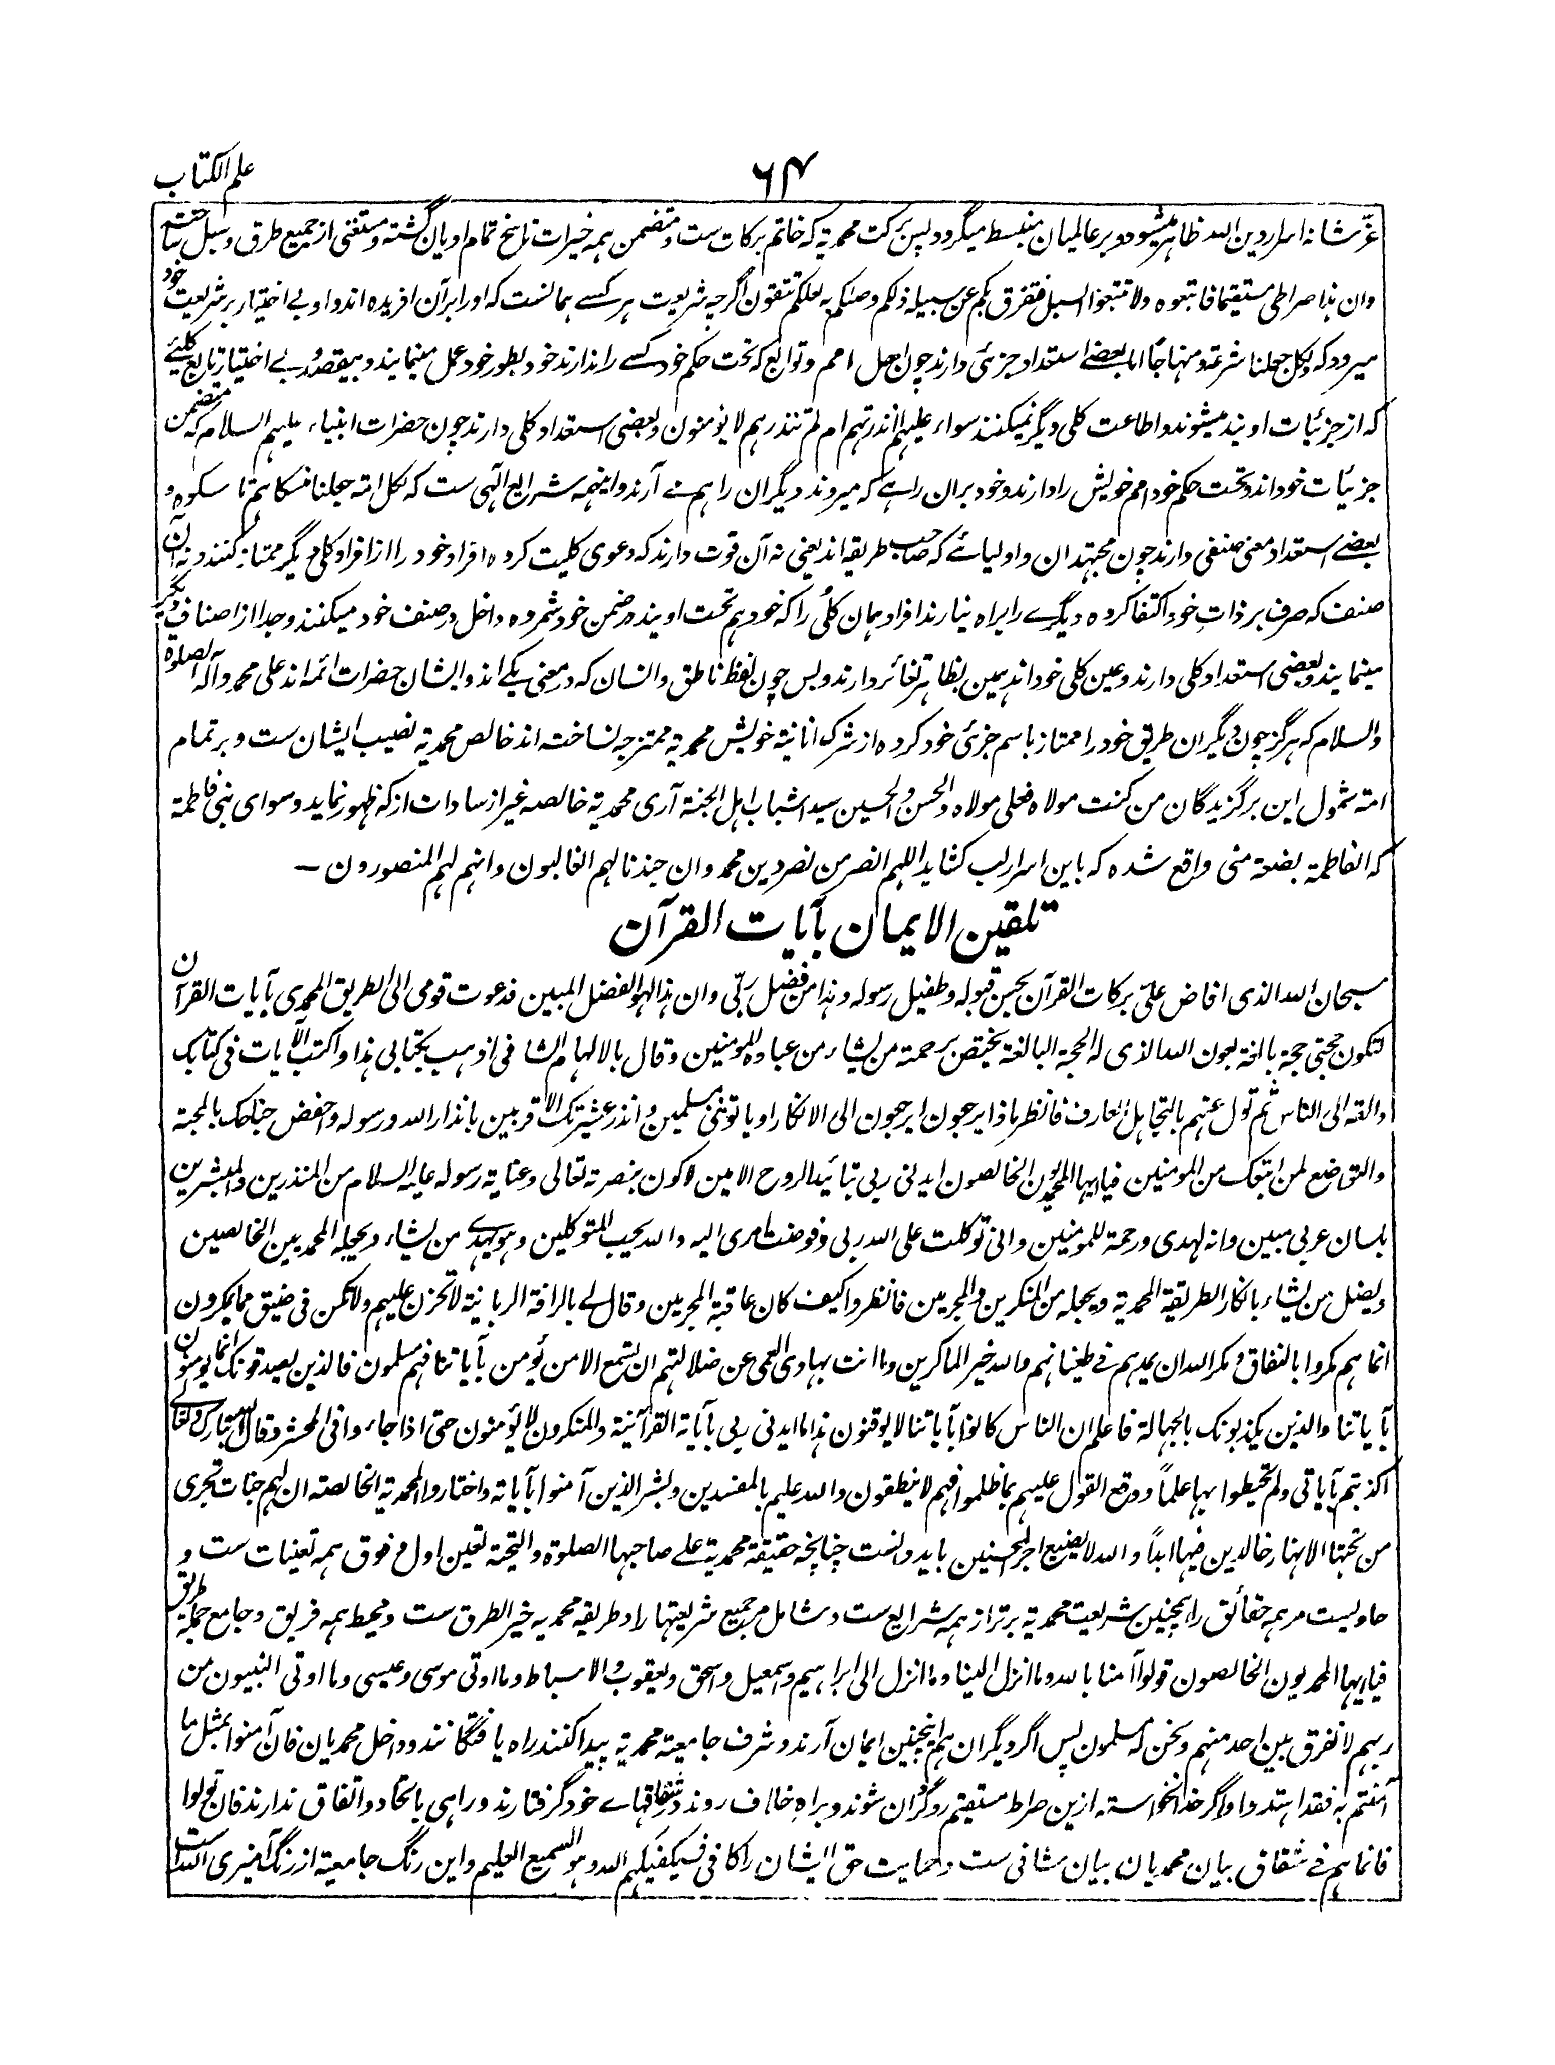 علم الکتاب
۶۴
عزّ شانه اسرار دین الله ظاهر میشود و بر عالمیان منبسط میگردد پس برکت محمدیه که خاتم برکات ست و متضمن همه خیرات ناسخ تمام ادیان گشته و مستغنی از جمیع طرق و سبل ساخته
وان هذا صراطی مستقیما فاتبعوه ولا تتبعوا السبل فتفرق بکم عن سبیله ذلکم وصکم به لعلکم تتقون اگرچه شریعت هر کسے همانست که او را بر آن آفریده اند و او بے اختیار بر شریعت خود
میرود که ولکل جعلنا شرعة ومنهاجاً اما بعضے استعداد جزئی دارند چون اجل امم و توابع که تحت حکم خود کسے را ندارند خود بطور خود عمل مینمایند و بیقصد و بے اختیار تابع کلیئے
که از جزئیات اویند میشوند و اطاعت کلی دیگر نمیکنند سواء علیهم أنذرتهم ام لم تنذرهم لا یؤمنون و بعضی استعداد کلی دارند چون حضرات انبیاء علیهم السلام که متضمن
جزئیات خود اند و تحت حکم خود امم خویش را دارند و خود بران راہے که میروند دیگران را هم مے آرند و اینهمه شرایع الٰهی ست که لکل امة جعلنا منسکا هم ناسکوه و
بعضے استعداد معنی صنفی دارند چون مجتهدان و اولیائے که صاحب طریقه اند یعنی نه آن قوت دارند که دعوی کلیت کرده افراد خود را از افراد کلی دیگر ممتاز کنند و نه آن
صنف که صرف بر ذات خود اکتفا کرده دیگرے را براه نیارند افراد همان کلی را که خود هم تحت اویند در ضمن خود شمرده داخل در صنف خود میکنند و جدا از اصناف دیگر
مینمایند و بعضی استعداد کلی دارند و عین کلی خود اند همین بظاهر تغائر دارند و بس چون لفظ ناطق و انسان که در معنی یکے اند و ایشان حضرات ائمه اند علی محمد وآله الصلوة
والسلام که هرگز چون دیگران طریق خود را ممتاز باسم جزئی خود کرده از شرک انانیة خویش محمدیه ممتزجه نساخته اند خالص محمدیة نصیب ایشان ست و بر تمام
امة شمول این برگزیدگان من کنت مولاه فعلی مولاه والحسن والحسین سیدا شباب اهل الجنة آری محمدیة خالصه غیر از سادات از که ظهور نماید و سوای بنی فاطمة
که الفاطمة بضعة منی واقع شده که باین اسرار لب کشاید اللهم انصر من نصر دین محمد وان جندنا لهم الغالبون وانهم لهم المنصورون —
تلقین الایمان بآیات القرآن
سبحان الله الذی افاض علیّ برکات القرآن بحسن قبوله وطفیل رسوله وهذا من فضل ربّی وان هذا لهو الفضل المبین فدعوت قومی الی الطریق المحمدی بآیات القرآن
لتکون حجتی حجة بالغة بعون الله الذی له الحجة البالغة یختص برحمة من یشاء من عباده المومنین وقال بالالهام الشافی اذهب بکتابی هذا واکتب الآیات فی کتابک
والقه الی الناس ثم تول عنهم بالتجاهل العارف فانظر ماذا یرجعون ایرجعون الی الانکار او یاتوننی مسلمین وانذر عشیرتک الاقربین بانذار الله ورسوله واخفض جناحک بالمحبة
والتواضع لمن اتبعک من المومنین فیا ایها المحمدیون الخالصون ایدنی ربی بتائید الروح الامین لاکون بنصرته تعالی وعنایة رسوله علیه السلام من المنذرین والمبشرین
بلسان عربی مبین وانه لهدی ورحمة للمومنین وانی توکلت علی الله ربی وفوضت امری الیه والله یحب المتوکلین وهو یهدے من یشاء ویجعله المحمدیین الخالصین
ویضل من یشاء بانکار الطریقة المحمدیة ویجعله من المنکرین والمجرمین فانظروا کیف کان عاقبة المجرمین وقال لے بالرافة الربانیة لا تحزن علیهم ولا تکن فی ضیق مما یمکرون
انما هم مکروا بالنفاق ومکر الله ان یمدهم فی طغیانهم والله خیر الماکرین وما انت بهادی العمی عن ضلالتهم ان یسمع الا من یؤمن بآیاتنا فهم مسلمون فالذین یصدقونک انما یومنون
بآیاتنا والذین یکذبونک بالجهالة فاعلم ان الناس کانوا بآیاتنا لا یوقنون هذا ما ایدنی ربی بآیاته القرآنیة والمنکرون لا یؤمنون حتی اذا جاءوا فی المحشر وقال الله تبارک وتعالی
اکذبتم بآیاتی ولم تحیطوا بها علماً ووقع القول علیهم بما ظلموا فهم لا ینطقون والله علیم بالمفسدین وبشر الذین آمنوا بآیاته واختاروا المحمدیة الخالصة ان لهم جنات تجری
من تحتها الانهار خالدین فیها ابداً والله لا یضیع اجر المحسنین باید دانست چنانچه حقیقة محمدیة علے صاحبها الصلوة والتحیة تعین اول و فوق همه تعینات ست و
حاویست مر همه حقائق را همچنین شریعت محمدیة برتر از همه شرایع ست و شامل مر جمیع شریعتها را و طریقه محمدیه خیر الطرق ست و محیط همه فریق و جامع جملة طریق
فیا ایها المحمدیون الخالصون قولوا آمنا بالله وما انزل الینا وما انزل الی ابراهیم واسمعیل واسحق ویعقوب والاسباط وما اوتی موسی وعیسی وما اوتی النبیون من
ربهم لا نفرق بین احد منهم ونحن له مسلمون پس اگر دیگران هم اینچنین ایمان آرند و شرف جامعیة محمدیة پیدا کنند راه یافتگانند و داخل محمدیان فان آمنوا بمثل ما
آمنتم به فقد اهتدوا و اگر خدا نخواسته ازین صراط مستقیم روگردان شوند و براه خلاف روند در شقاقهاے خود گرفتارند و راهی باتحاد و اتفاق ندارند فان تولوا
فانما هم فی شقاق بیان محمدیان بیان شافی ست و حمایت حق ایشان را کافی فسیکفیکهم الله وهو السمیع العلیم و این رنگ جامعیة از رنگ آمیزی الله ست